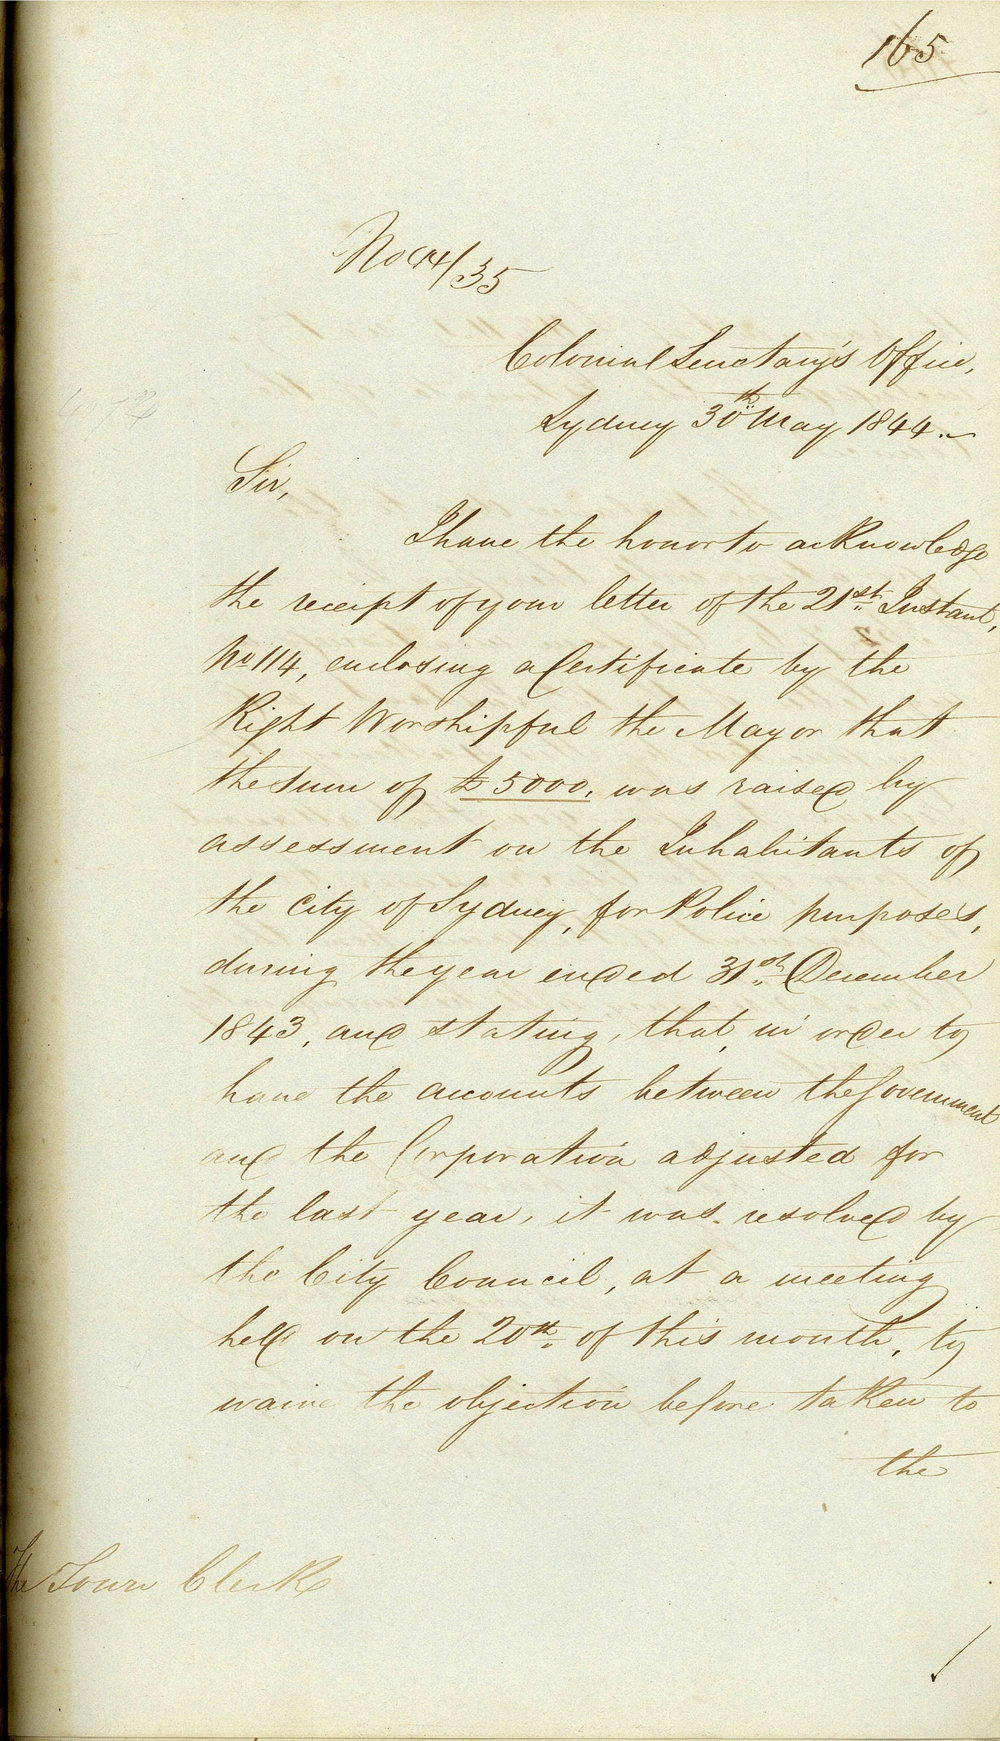 165
No 44/35
Colonial Secretary's Office,
Sydney 30th May 1844.
Sir,
I have the honor to acknowledge
the receipt of your letter of the 21st. Instant,
No 114, enclosing a Certificate by the
Right Worshipful the Mayor that
the sum of £5000, was raised by
assessment on the Inhabitants of
the City of Sydney, for Police purposes,
during the year ended 31st. December
1843, and stating, that, in order to
have the accounts between the Government
and the Corporation adjusted for
the last year, it was resolved by
the City Council, at a meeting
held on the 20th. of this month, to
waive the objection before taken to
the
The Town Clerk